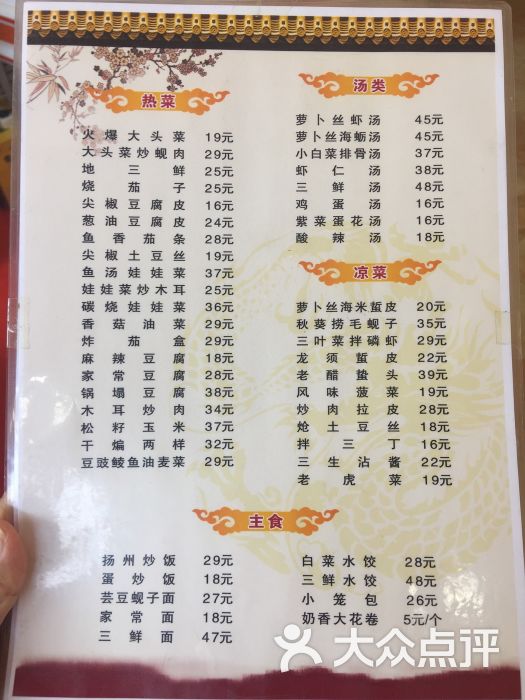 热菜
火爆大头菜 19元
大头菜炒蚬肉 29元
地三鲜 25元
烧茄子 25元
尖椒豆腐皮 16元
葱油豆腐皮 24元
鱼香茄条 28元
尖椒土豆丝 19元
鱼汤娃娃菜 37元
娃娃菜炒木耳 25元
碳烧娃娃菜 36元
香菇油菜 29元
炸茄盒 29元
麻辣豆腐 18元
家常豆腐 28元
锅塌豆腐 38元
木耳炒肉 34元
松籽玉米 37元
干煸两样 32元
豆豉鲮鱼油麦菜 29元
汤类
萝卜丝虾汤 45元
萝卜丝海蛎汤 45元
小白菜排骨汤 37元
虾仁汤 38元
三鲜汤 48元
鸡蛋汤 16元
紫菜蛋花汤 16元
酸辣汤 18元
凉菜
萝卜丝海米蜇皮 20元
秋葵捞毛蚬子 35元
三叶菜拌磷虾 29元
龙须蜇皮 22元
老醋蜇头 39元
风味菠菜 19元
炒肉拉皮 28元
炝土豆丝 18元
拌三丁 16元
三生沾酱 22元
老虎菜 19元
主食
扬州炒饭 29元
蛋炒饭 18元
芸豆蚬子面 27元
家常面 18元
三鲜面 47元
白菜水饺 28元
三鲜水饺 48元
小笼包 26元
奶香大花卷 5元/个
大众点评